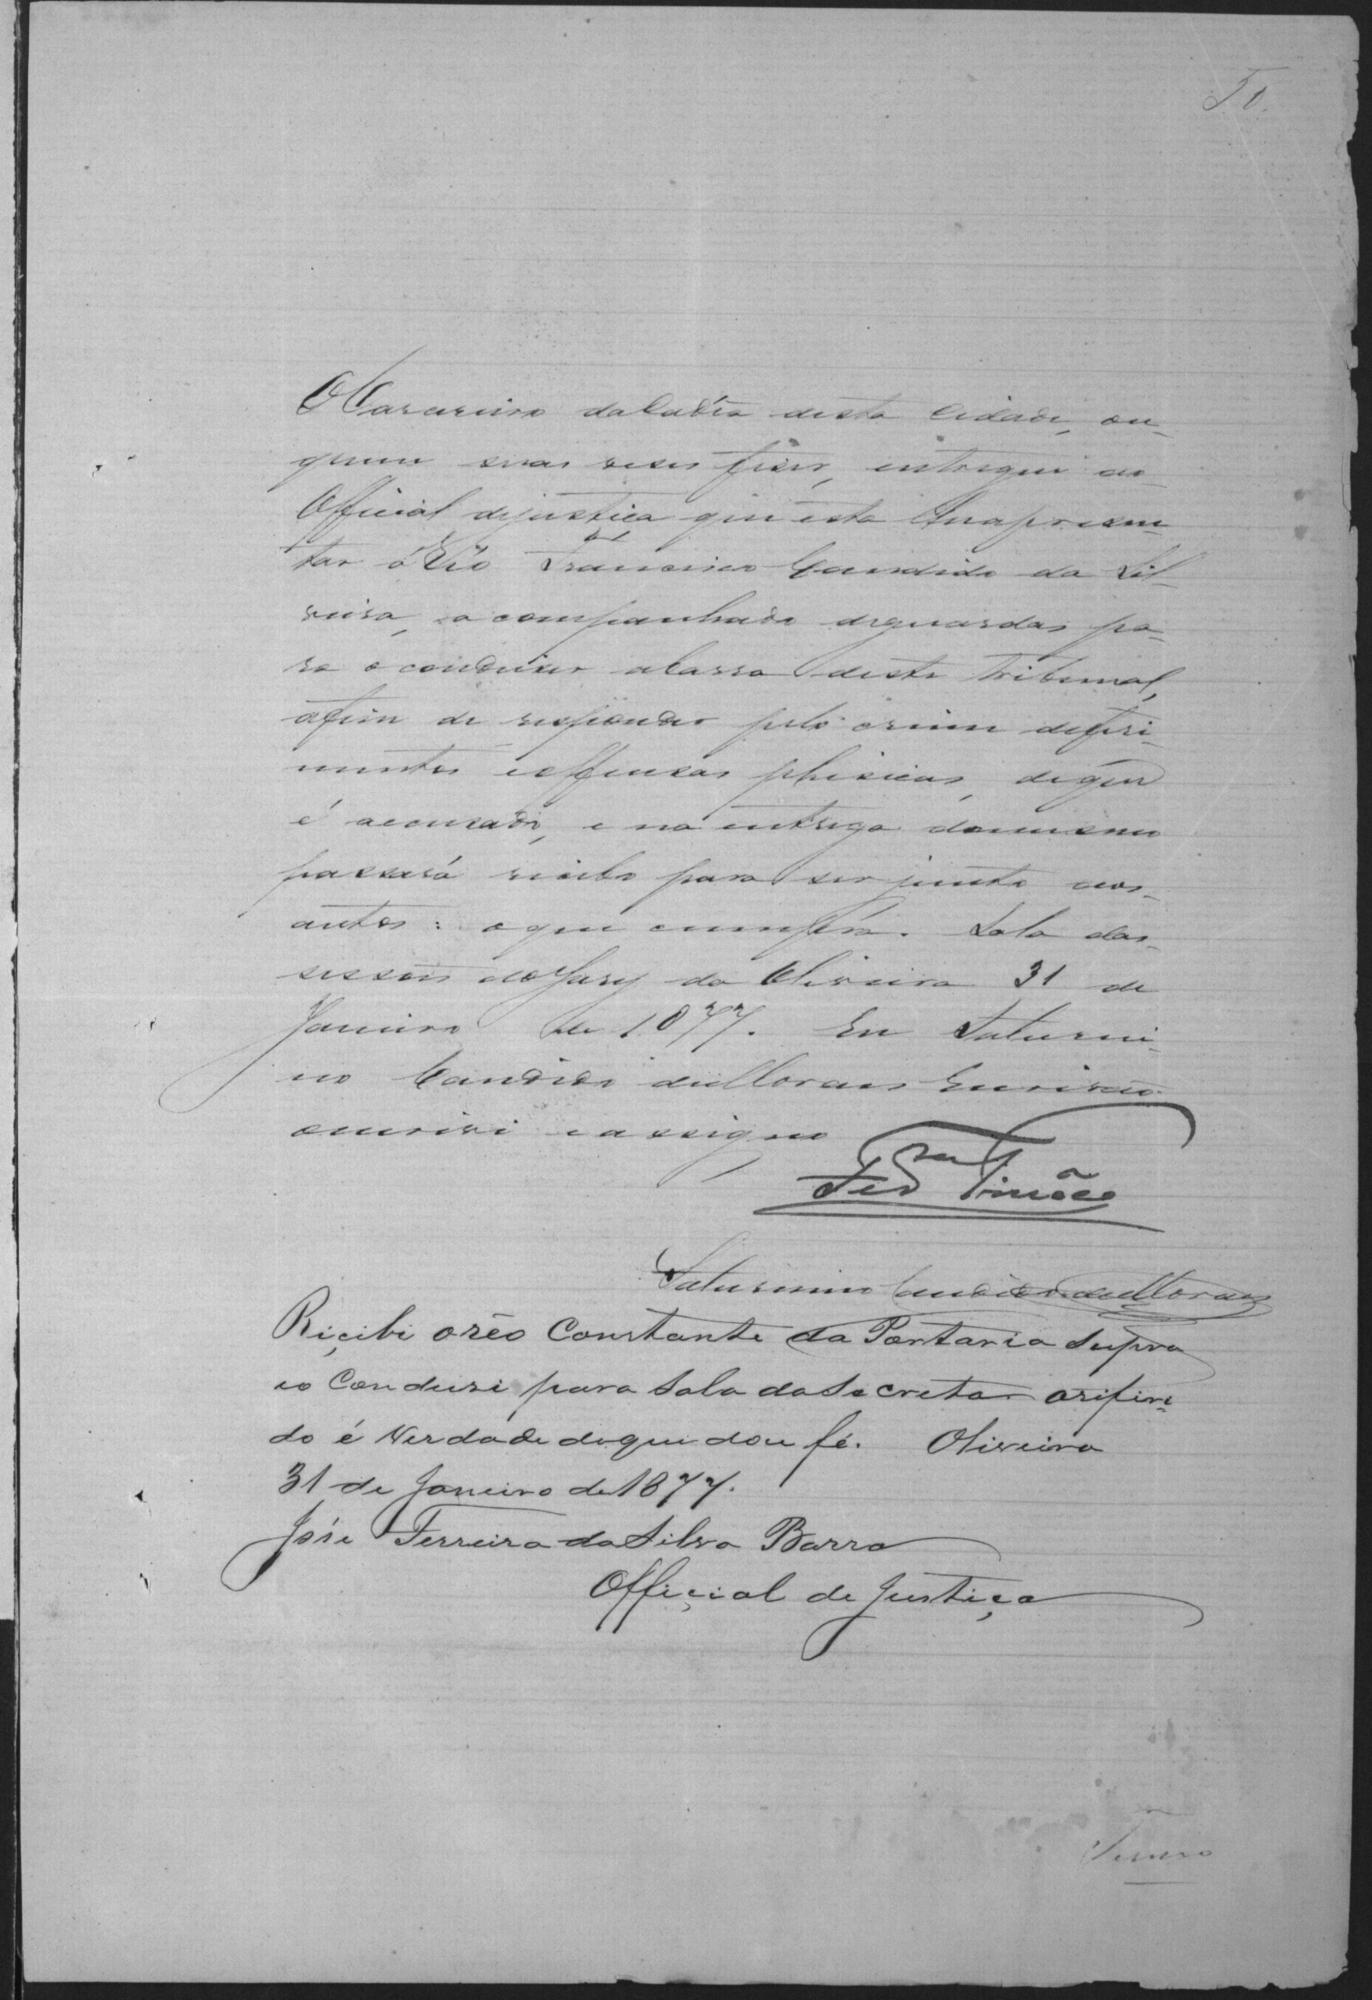 50.
O Carcereiro da Cadêa desta Cidade, ou
quem suas veses fiser, entregue ao
Official de justiça que esta lhe apresen-
tar o Réo Francisco Candido da Sil-
veira, acompanhado de guardas pa-
ra o conduser a Casa deste Tribunal,
afim de responder pelo crime de feri-
mentos e offensas phisicas, de que
é accusado, e na entrega do mesmo
passará recibo para ser junto aos
autos: o que cumpra. Sala das
sessões do Jury da Oliveira 31 de
Janeiro de 1877. Eu Saturni-
no Candido de Moraes Escrivão
escrivi e assigno
Saturnino Candido de Moraes
Riçibi o réo Constante da Portaria Supra
eo Condusi para Sala da Secreta orifiri-
do é Verdade deque dou fé. Oliveira
31 de Janeiro de 1877.
José Ferreira da Silva Barra
Offiçial de Justiça